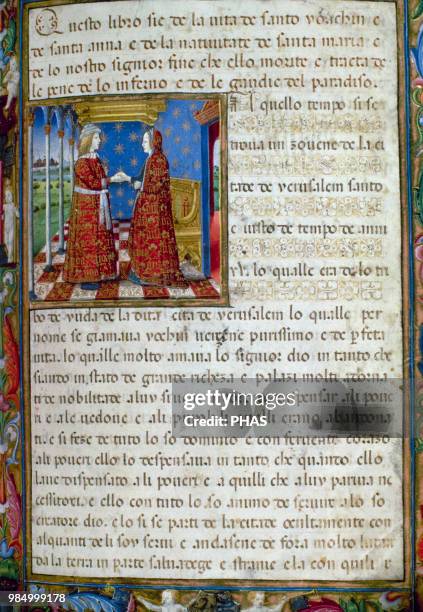 Questo libro sie de la uita de santo yoachin e
de santa anna e de la natiuitate de santa maria e
de lo nostro signior fine che ello morite e tracta de
le pene de lo inferno e de le gaudie del paradiso.
quello tempo si se
troua un zouene de la ci
tade de yerusalem santo
e iusto de tempo de anni
lo qualle era de lo tri
bo de yuda de la dita cita de yerusalem lo qualle per
nome se giamaua uirgine purissimo e de perfeta
uita. lo qualle molto amaua lo signior dio in tanto che
siando in stato de grande richeza e palazi molti
de nobilitade aluy
e ale uedoue e ali
e si feze de tuto lo so dominio e con feruente corazo
ali poueri ello lo despensaua in tanto che quanto ello
laue dispensato ali poueri e a quilli che aluy pariua ne
cessitori e ello con tuto lo so animo de seruire alo so
creatore dio. e lo si se parti de la citade ocultamente con
alquanti deli soy serui e andasene de fora molto
da la terra in parte saluadege e stranie e la con quili
gettyimages
Credit: PHAS
986499178